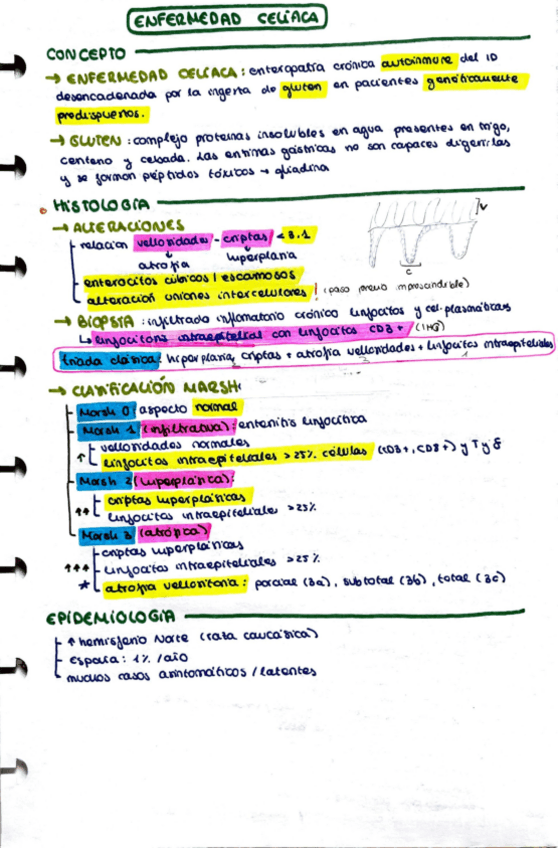 ENFERMEDAD CELÍACA
CONCEPTO
→ ENFERMEDAD CELÍACA: enteropatía crónica autoinmune del ID
desencadenada por la ingesta de gluten en pacientes genéticamente
predispuestos.
→ GLUTEN: complejo proteínas insolubles en agua presentes en trigo,
centeno y cebada. Las enzimas gástricas no son capaces digerirlas
y se forman péptidos tóxicos → gliadina
HISTOLOGÍA
→ ALTERACIONES
relación vellosidades - criptas < 3.1
↓ atrofia ↓ hiperplasia
enterocitos cúbicos / escamosos
alteración uniones intercelulares ! (paso previo imprescindible)
V
C
→ BIOPSIA: infiltrado inflamatorio crónico linfocitos y cel. plasmáticas
↳ linfocitosis intraepitelial con linfocitos CD3+ (IHQ)
Triada clásica: hiperplasia criptas + atrofia vellosidades + linfocitos intraepiteliales
→ CLASIFICACIÓN MARSH:
Marsh 0: aspecto normal
Marsh 1 (infiltrativa): enteritis linfocítica
vellosidades normales
↑ linfocitos intraepiteliales > 25% células (CD3+, CD8+) y T γ δ
Marsh 2 (hiperplásica):
criptas hiperplásicas
↑↑ linfocitos intraepiteliales > 25%
Marsh 3 (atrófica)
criptas hiperplásicas
↑↑↑ linfocitos intraepiteliales > 25%
* atrofia vellositaria: parcial (3a), subtotal (3b), total (3c)
EPIDEMIOLOGÍA
↑ hemisferio Norte (raza caucásica)
España: 1% / año
muchos casos asintomáticos / latentes